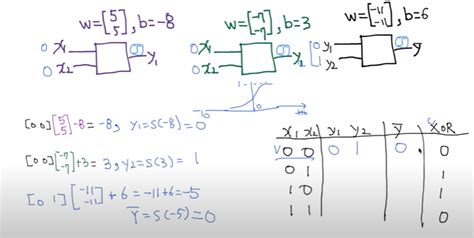 w=[5 5], b=-8
w=[-7 -7], b=3
w=[-11 -11], b=6
0 x₁
0 x₂
σ
y₁
0 x₁
0 x₂
σ
y₂
0 y₁
1 y₂
σ
ȳ
[0 0][5 5]-8=-8, y₁=S(-8)=0
[0 0][-7 -7]+3=3, y₂=S(3)=1
[0 1][-11 -11]+6=-11+6=-5
ȳ=S(-5)=0
x₁ x₂ y₁ y₂ ȳ XOR
0 0 0 1 0 0
0 1 1
1 0 1
1 1 0